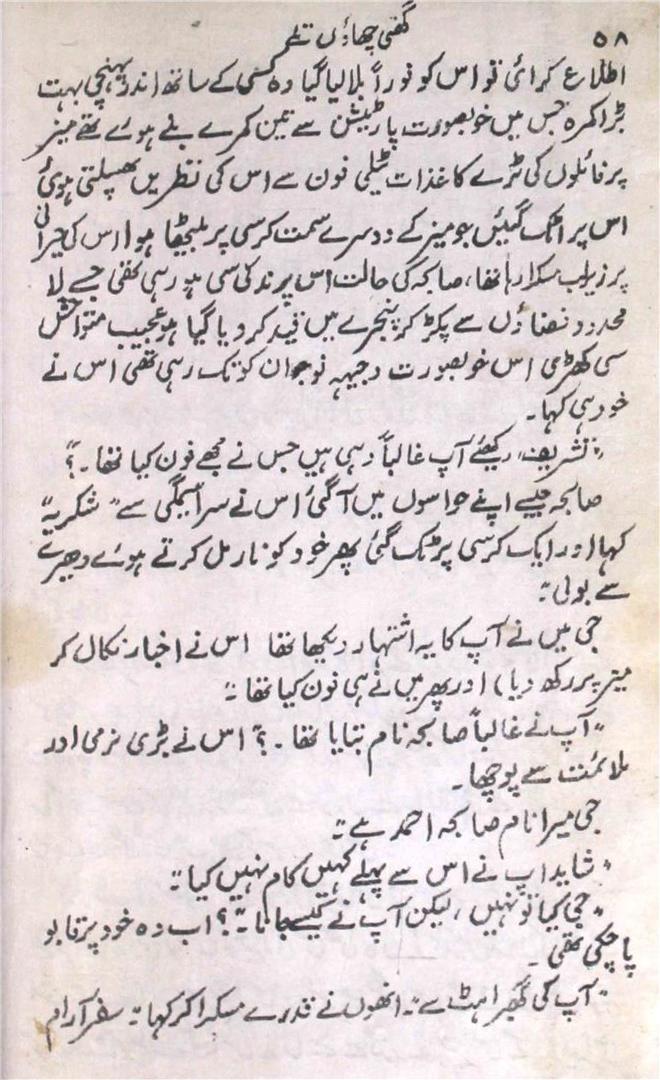 ۵۸
گھنی چھاؤں تلے
اطلاع کرائی تو اس کو فوراً بلا لیا گیا وہ کسی کے ساتھ اندر پہنچی بہت
بڑا کمرہ جس میں خوبصورت پارٹیشن سے تین کمرے بنے ہوئے تھے میز
پر فائلوں کی ٹرے کاغذات ٹیلی فون سے اس کی نظریں پھسلتی ہوئی
اس پر اٹک گئیں جو میز کے دوسرے سمت کرسی پر بیٹھا ہوا اس کی حیرانی
پر زیرلب مسکرا رہا تھا، صابحہ کی حالت اس پرند کی سی ہو رہی تھی جسے لا
محدود فضاؤں سے پکڑ کر پنجرے میں قید کر دیا گیا ہو عجیب متوحش
سی کھڑی اس خوبصورت وجیہہ نوجوان کو تک رہی تھی اس نے
خود ہی کہا۔
"تشریف رکھئے آپ غالباً وہی ہیں جس نے مجھے فون کیا تھا۔؟"
صابحہ جیسے اپنے حواسوں میں آگئی اس نے سراسیمگی سے "شکریہ"
کہا اور ایک کرسی پر ٹک گئی پھر خود کو نارمل کرتے ہوئے دھیرے
سے بولی:
جی میں نے آپ کا یہ اشتہار دیکھا تھا اس نے اخبار نکال کر
میز پر رکھ دیا) اور پھر میں نے ہی فون کیا تھا۔"
"آپ نے غالباً صابحہ نام بتایا تھا۔؟" اس نے بڑی نرمی اور
ملائمت سے پوچھا۔
جی میرا نام صابحہ احمد ہے۔"
"شاید آپ نے اس سے پہلے کہیں کام نہیں کیا۔"
"جی کیا تو نہیں، لیکن آپ نے کیسے جانا۔"؟ اب وہ خود پر قابو
پا چکی تھی۔
"آپ کی گھبراہٹ سے"۔ انھوں نے قدرے مسکرا کر کہا۔" سفر آرام